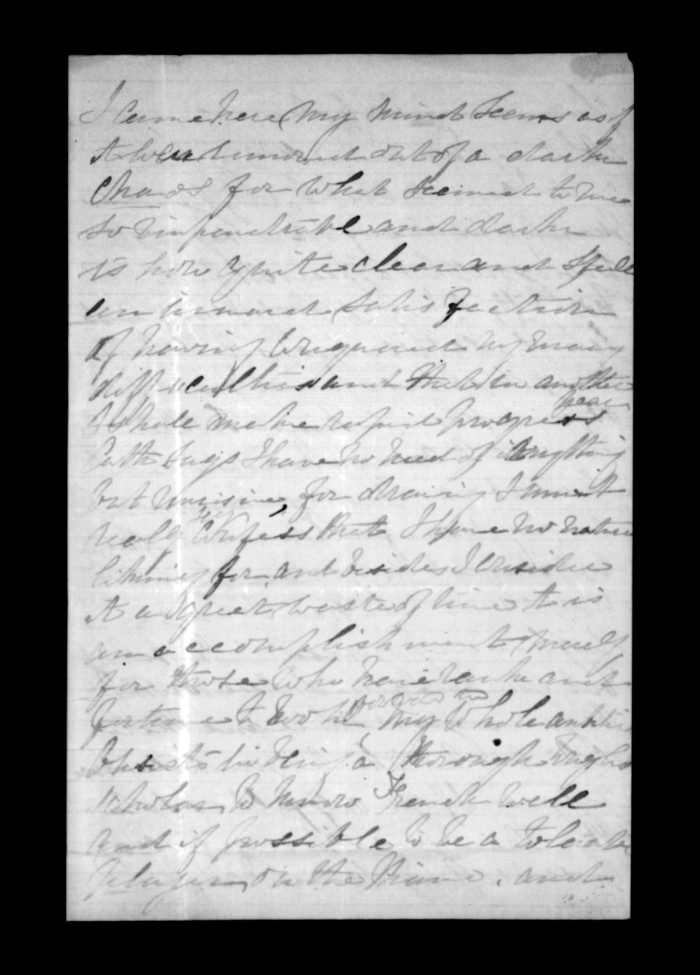 I came here my mind seems as if
it were turned out of a dark
chaos for what seemed to me
so impenetrable and dark
is now quite clear and I feel
an inward satisfaction
of having conquered my many
difficulties and that in another
year
I shall make rapid progress
Cath says I have no need of anything
but music, for drawing I must
really confess that I have no natural
liking for and besides I consider
it a great waste of time it is
an accomplishment merely
for those who have rank and
fortune to work my whole ambition
consists in being a thorough English
scholar to know French well
and if possible to be a tolerable
player on the Piano, and